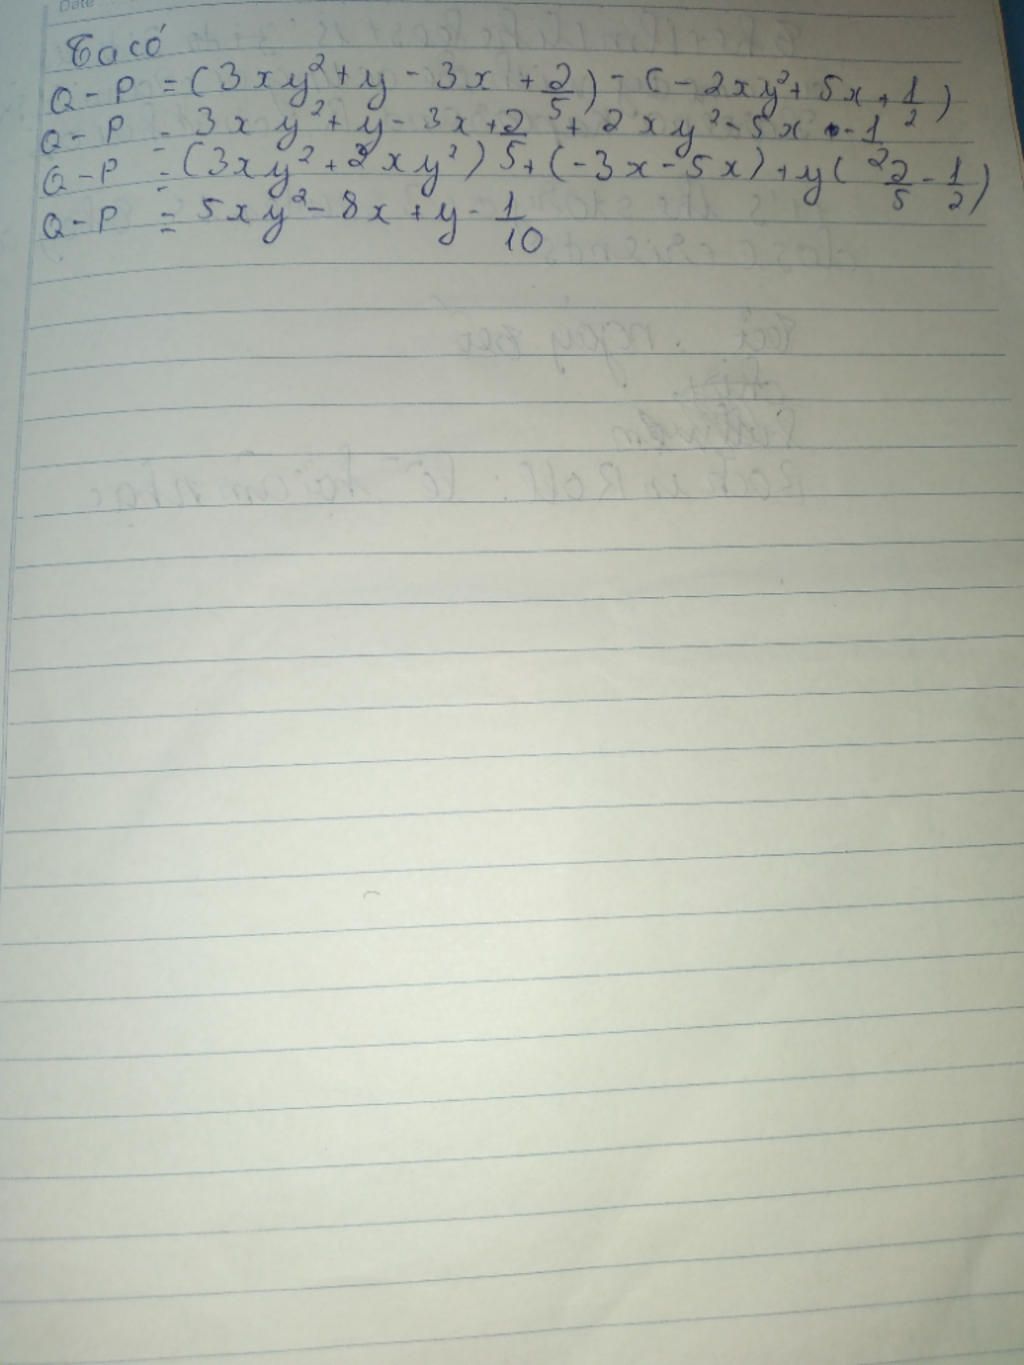 Date
Ta có
Q - P = (3xy² + y - 3x + 2/5) - (-2xy² + 5x + 1/2)
Q - P = 3xy² + y - 3x + 2/5 + 2xy² - 5x - 1/2
Q - P = (3xy² + 2xy²) + (-3x - 5x) + y (2/5 - 1/2)
Q - P = 5xy² - 8x + y - 1/10